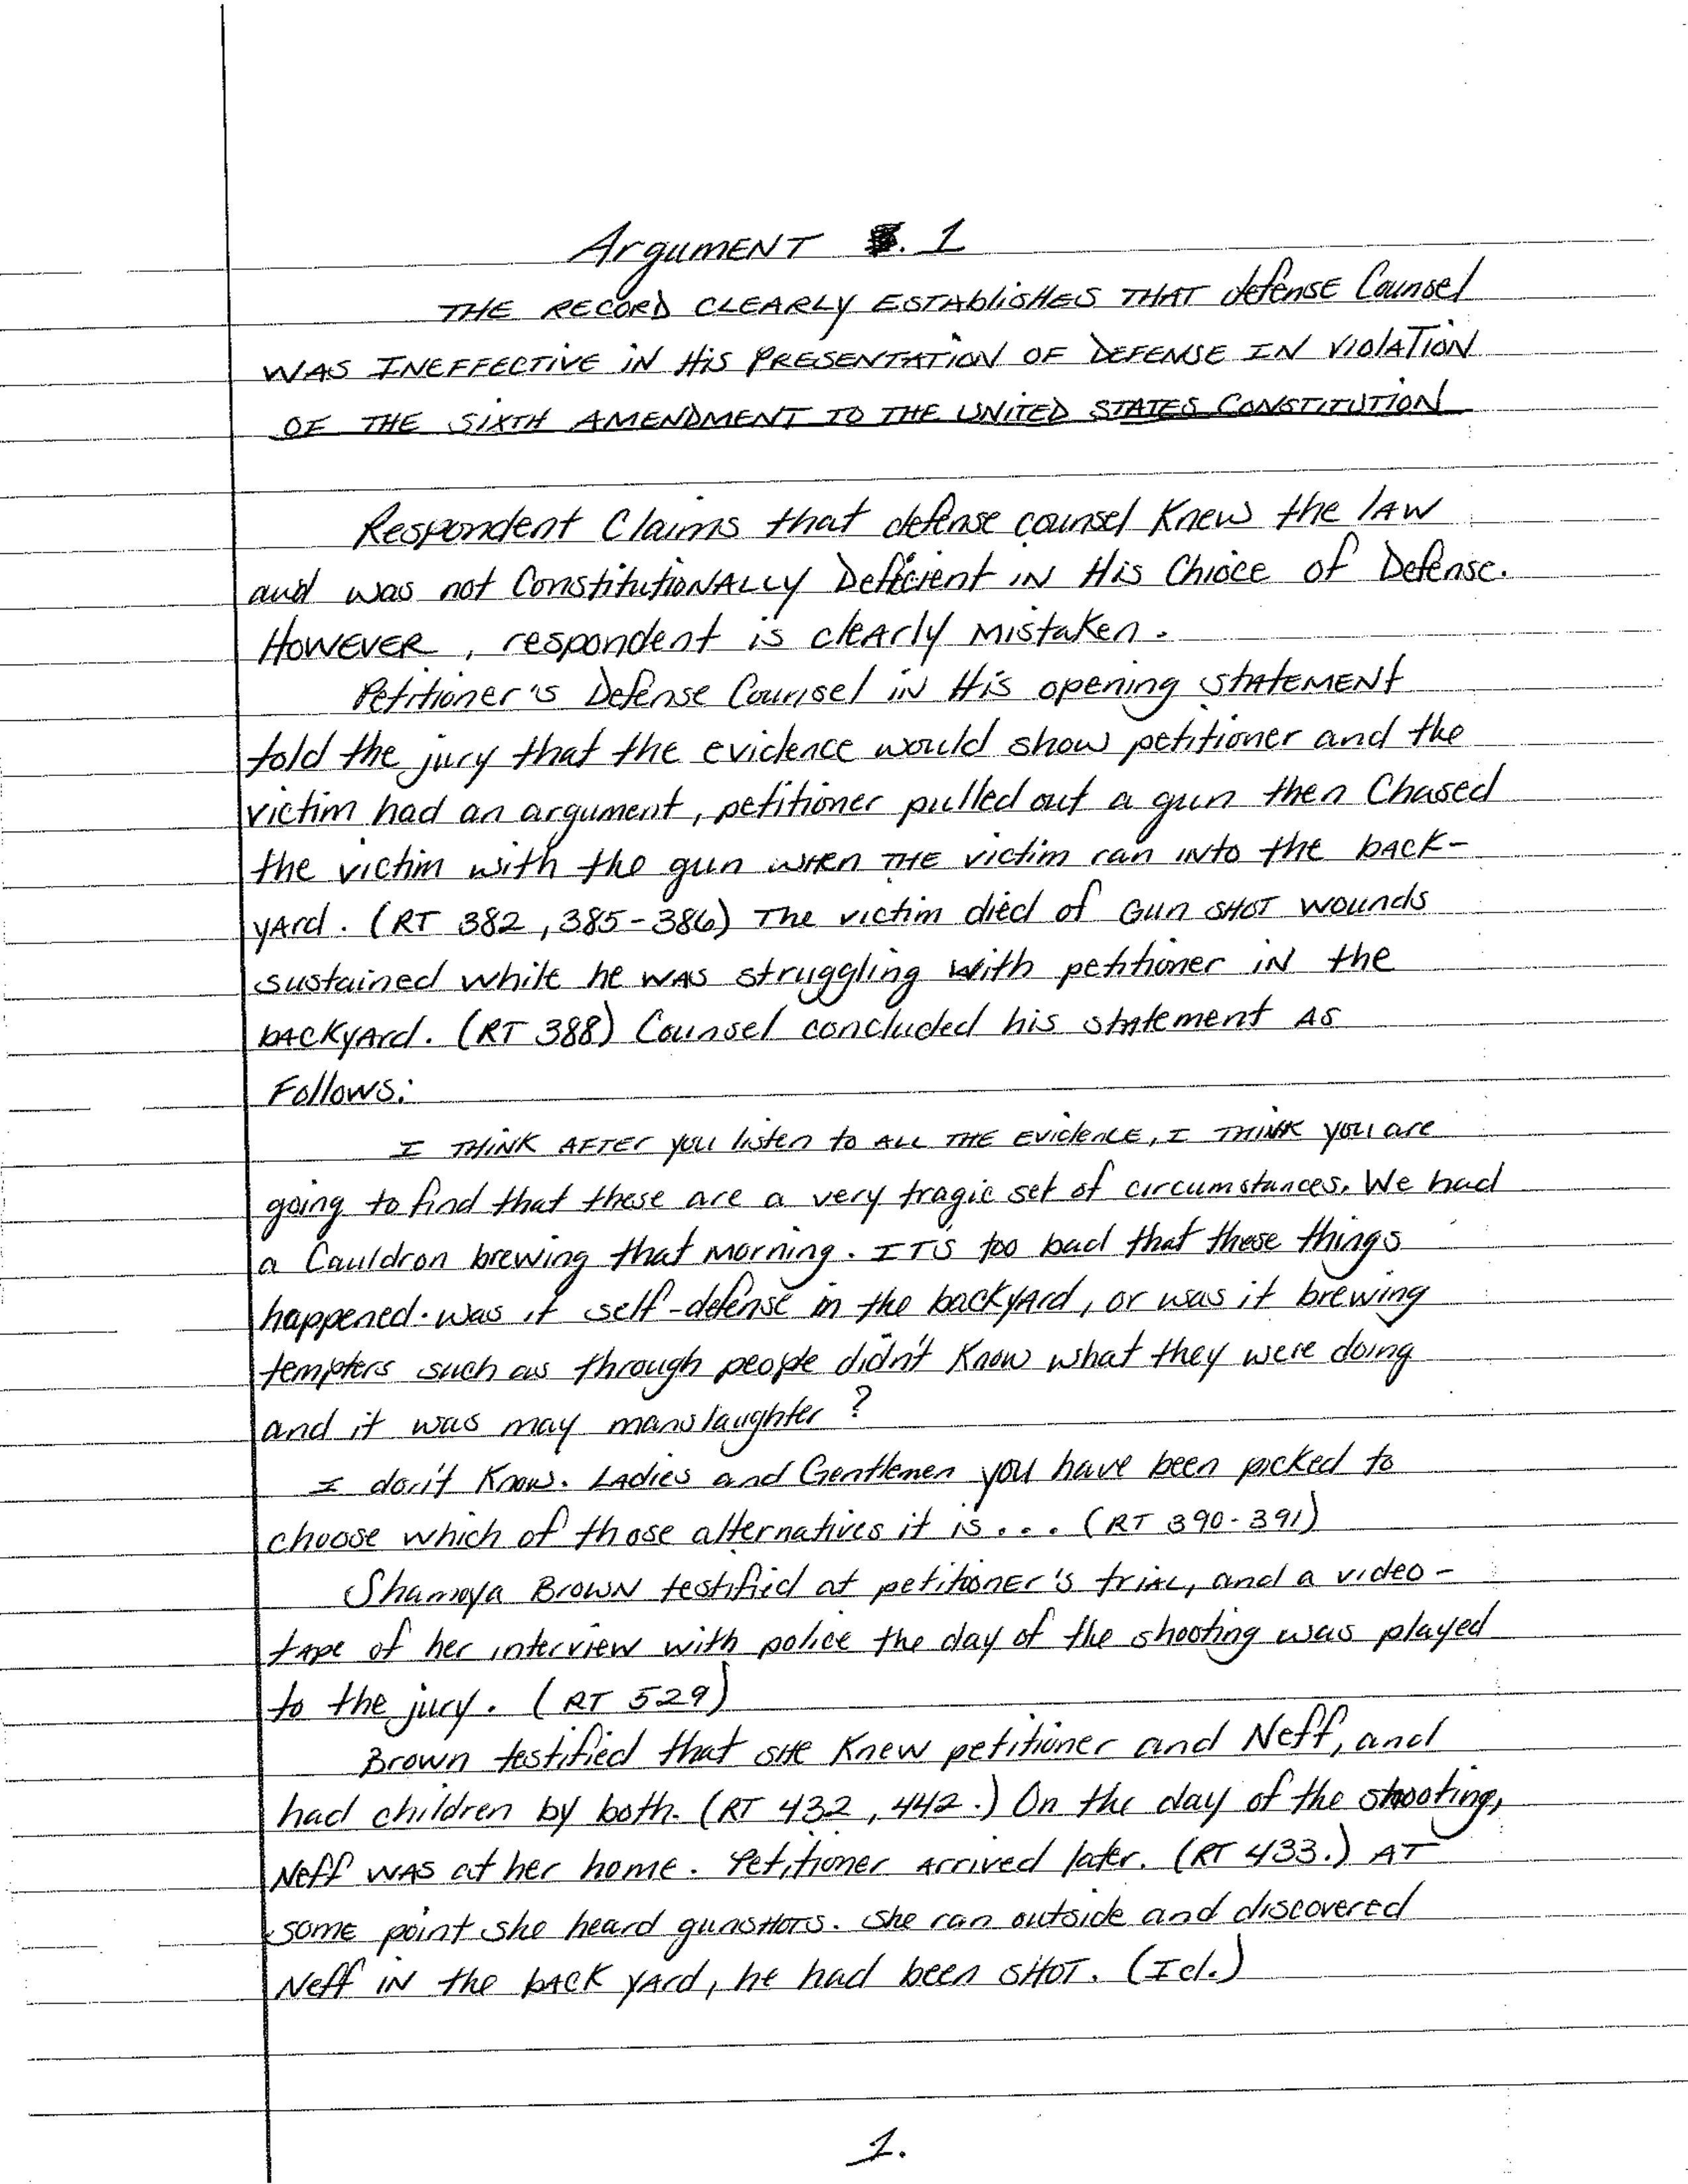 Argument . 1
THE RECORD CLEARLY ESTABLISHES THAT defense Counsel
WAS INEFFECTIVE IN His PRESENTATION OF DEFENSE IN VIOLATION
OF THE SIXTH AMENDMENT TO THE UNITED STATES CONSTITUTION
Respondent Claims that defense counsel Knew the law
and was not Constitutionally Deficient in His Chioce of Defense.
However, respondent is clearly Mistaken.
Petitioner's Defense Counsel in His opening statement
told the jury that the evidence would show petitioner and the
victim had an argument, petitioner pulled out a gun then Chased
the victim with the gun when THE victim ran into the back-
yard. (RT 382, 385-386) The victim died of Gun SHOT wounds
sustained while he was struggling with petitioner in the
backyard. (RT 388) Counsel concluded his statement as
Follows:
I THINK AFTER you listen to ALL THE Evidence, I THINK you are
going to find that these are a very tragic set of circumstances. We had
a Cauldron brewing that morning. ITS too bad that these things
happened. was it self-defense in the backyard, or was it brewing
tempters such as through people didn't Know what they were doing
and it was may manslaughter?
I don't Know. Ladies and Gentlemen you have been picked to
choose which of those alternatives it is... (RT 390-391)
Shamoya Brown testified at petitioner's trial, and a video-
tape of her interview with police the day of the shooting was played
to the jury. (RT 529)
Brown testified that she Knew petitioner and Neff, and
had children by both. (RT 432, 442.) On the day of the shooting,
Neff was at her home. Petitioner arrived later. (RT 433.) AT
some point she heard gunshots. She ran outside and discovered
Neff in the back yard, he had been SHOT. (Id.)
1.